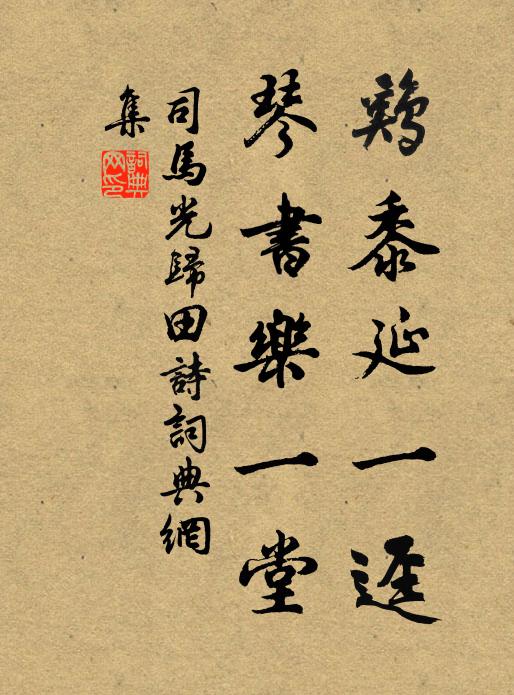 鷄黍延一逕
琴書樂一堂
司馬光歸田詩詞典網
集
詞典
网印